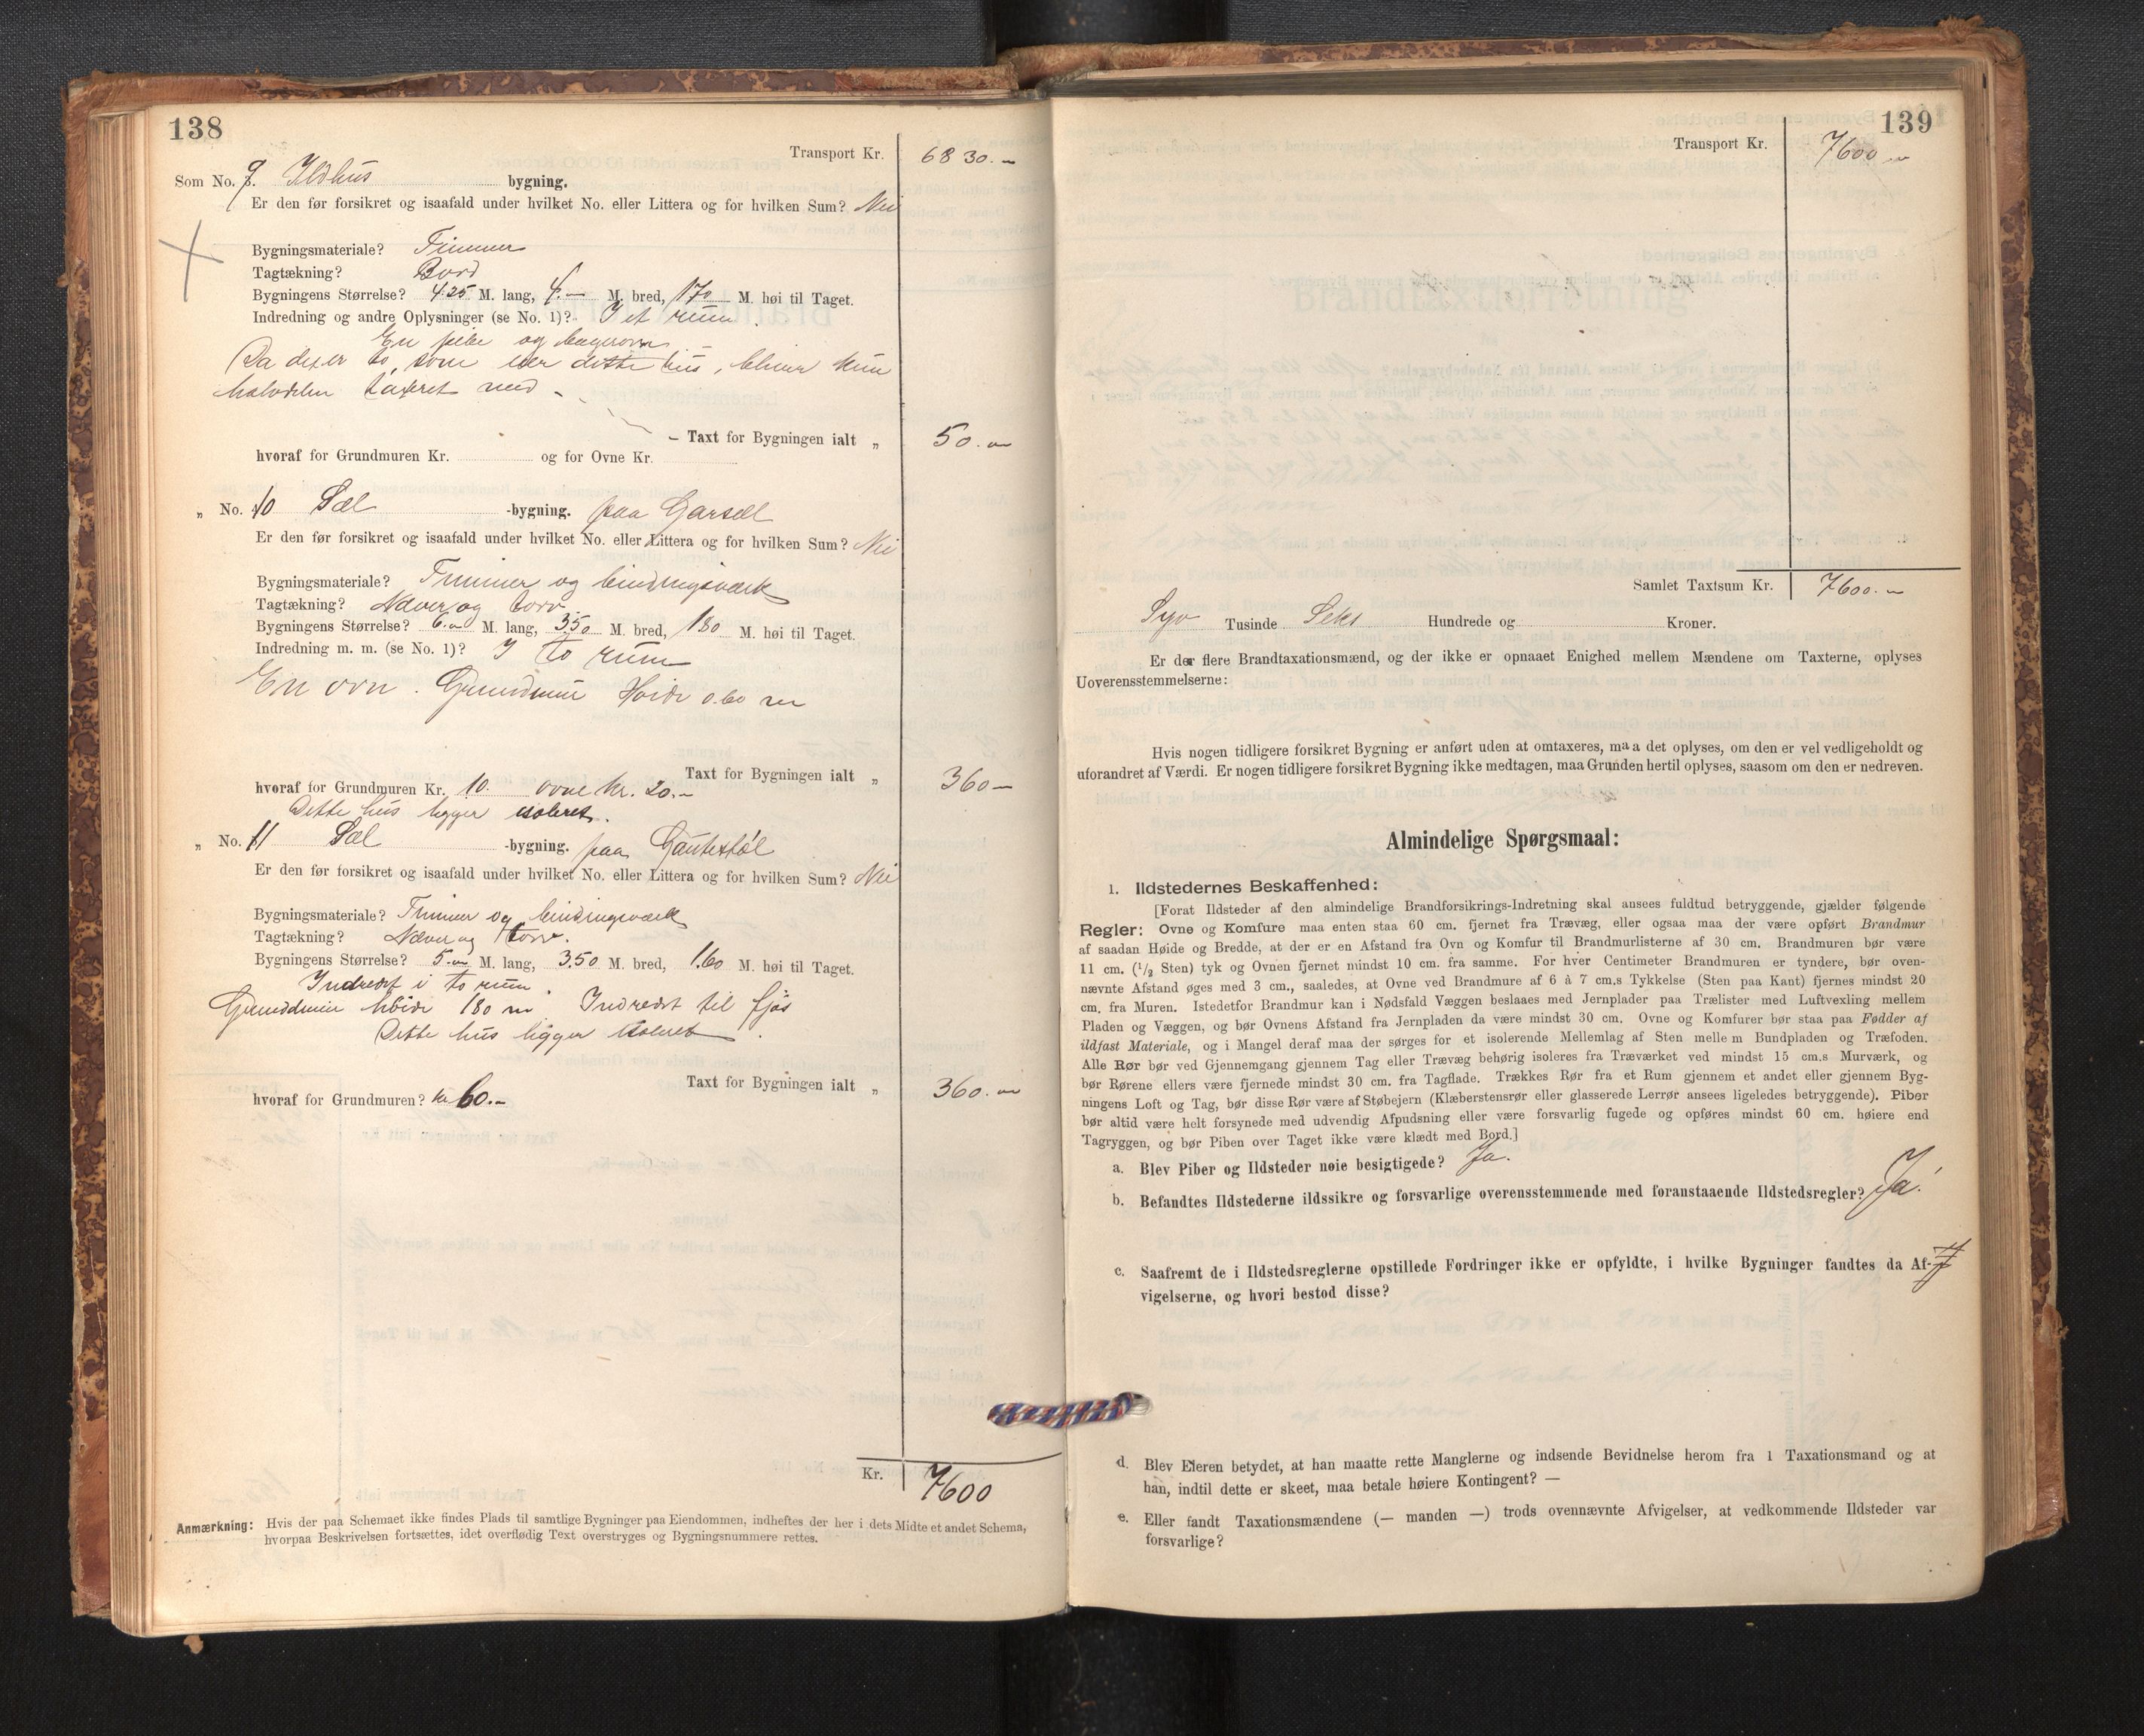 138
Transport Kr. 6830.—
Som No. 9. Ildhus bygning.
Er den før forsikret og isaafald under hvilket No. eller Littera og for hvilken Sum? Nei
Bygningsmateriale? Timmer
Tagtækning? Bord
Bygningens Størrelse? 4.25 M. lang, 4.— M. bred, 170 M. høi til Taget.
Indredning og andre Oplysninger (se No. 1)? I et rum.
En pibe og bagerovn
Da der er to, som eier dette hus, bliver kun
halvdelen taxeret med —
— Taxt for Bygningen ialt „ 50.—
hvoraf for Grundmuren Kr. og for Ovne Kr.
„ No. 10 Sæl -bygning. paa Garsæl
Er den før forsikret og isaafald under hvilket No. eller Littera og for hvilken Sum? Nei
Bygningsmateriale? Timmer og bindingsværk
Tagtækning? Næver og torv.
Bygningens Størrelse? 6.— M. lang, 3.50 M. bred, 180 M. høi til Taget.
Indredning m. m. (se No. 1)? I to rum
En ovn. Grundmur Høide 0.60 m
Taxt for Bygningen ialt „ 360—
hvoraf for Grundmuren Kr. 10. ovne Kr. 20.—
Dette hus ligger isoleret.
„ No. 11 Sæl -bygning. paa Gautestøl
Er den før forsikret og isaafald under hvilket No. eller Littera og for hvilken Sum? Nei
Bygningsmateriale? Timmer og bindingsværk
Tagtækning? Næver og torv.
Bygningens Størrelse? 5.— M. lang, 3.50 M. bred, 1.60 M. høi til Taget.
Indredet i to rum.
Grundmur høide 180 m Indredet til fjøs
Dette hus ligger isoleret.
Taxt for Bygningen ialt „ 360.—
hvoraf for Grundmuren? Kr 60.—
Kr. 7600
Anmærkning: Hvis der paa Schemaet ikke findes Plads til samtlige Bygninger paa Eiendommen, indheftes der her i dets Midte et andet Schema,
hvorpaa Beskrivelsen fortsættes, idet overflødig Text overstryges og Bygningsnummere rettes.
139
Transport Kr. 7600 —
Samlet Taxtsum Kr. 7600.—
Syv Tusinde Seks Hundrede og Kroner.
Er der flere Brandtaxationsmænd, og der ikke er opnaaet Enighed mellem Mændene om Taxterne, oplyses
Uoverensstemmelserne:
Hvis nogen tidligere forsikret Bygning er anført uden at omtaxeres, maa det oplyses, om den er vel vedligeholdt og
uforandret af Værdi. Er nogen tidligere forsikret Bygning ikke medtagen, maa Grunden hertil oplyses, saasom om den er nedreven.
Almindelige Spørgsmaal:
1. Ildstedernes Beskaffenhed:
[Forat Ildsteder af den almindelige Brandforsikrings-Indretning skal ansees fuldtud betryggende, gjælder følgende
Regler: Ovne og Komfure maa enten staa 60 cm. fjernet fra Trævæg, eller ogsaa maa der være opført Brandmur
af saadan Høide og Bredde, at der er en Afstand fra Ovn og Komfur til Brandmurlisterne af 30 cm. Brandmuren bør være
11 cm. (1/2 Sten) tyk og Ovnen fjernet mindst 10 cm. fra samme. For hver Centimeter Brandmuren er tyndere, bør oven-
nævnte Afstand øges med 3 cm., saaledes, at Ovne ved Brandmure af 6 à 7 cm.s Tykkelse (Sten paa Kant) fjernes mindst 20
cm. fra Muren. Istedetfor Brandmur kan i Nødsfald Væggen beslaaes med Jernplader paa Trælister med Luftvexling mellem
Pladen og Væggen, og bør Ovnens Afstand fra Jernpladen da være mindst 30 cm. Ovne og Komfurer bør staa paa Fødder af
ildfast Materiale, og i Mangel deraf maa der sørges for et isolerende Mellemlag af Sten mellem Bundpladen og Træfoden.
Alle Rør bør ved Gjennemgang gjennem Tag eller Trævæg behørig isoleres fra Træværket ved mindst 15 cm.s Murværk, og
bør Rørene ellers være fjernede mindst 30 cm. fra Tagflade. Trækkes Rør fra et Rum gjennem et andet eller gjennem Byg-
ningens Loft og Tag, bør disse Rør være af Støbejern (Klæberstensrør eller glasserede Lerrør ansees ligeledes betryggende). Piber
bør altid være helt forsynede med udvendig Afpudsning eller være forsvarlig fugede og opføres mindst 60 cm. høiere end
Tagryggen, og bør Piben over Taget ikke være klædt med Bord.]
a. Blev Piber og Ildsteder nøie besigtigede? Ja.
b. Befandtes Ildstederne ildssikre og forsvarlige overensstemmende med foranstaaende Ildstedsregler? Ja.
c. Saafremt de i Ildstedsreglerne opstillede Fordringer ikke er opfyldte, i hvilke Bygninger fandtes da Af-
vigelserne, og hvori bestod disse?
d. Blev Eieren betydet, at han maatte rette Manglerne og indsende Bevidnelse herom fra 1 Taxationsmand og at
han, indtil dette er skeet, maa betale høiere Kontingent? —
e. Eller fandt Taxationsmændene (— manden —) trods ovennævnte Afvigelser, at vedkommende Ildsteder var
forsvarlige?